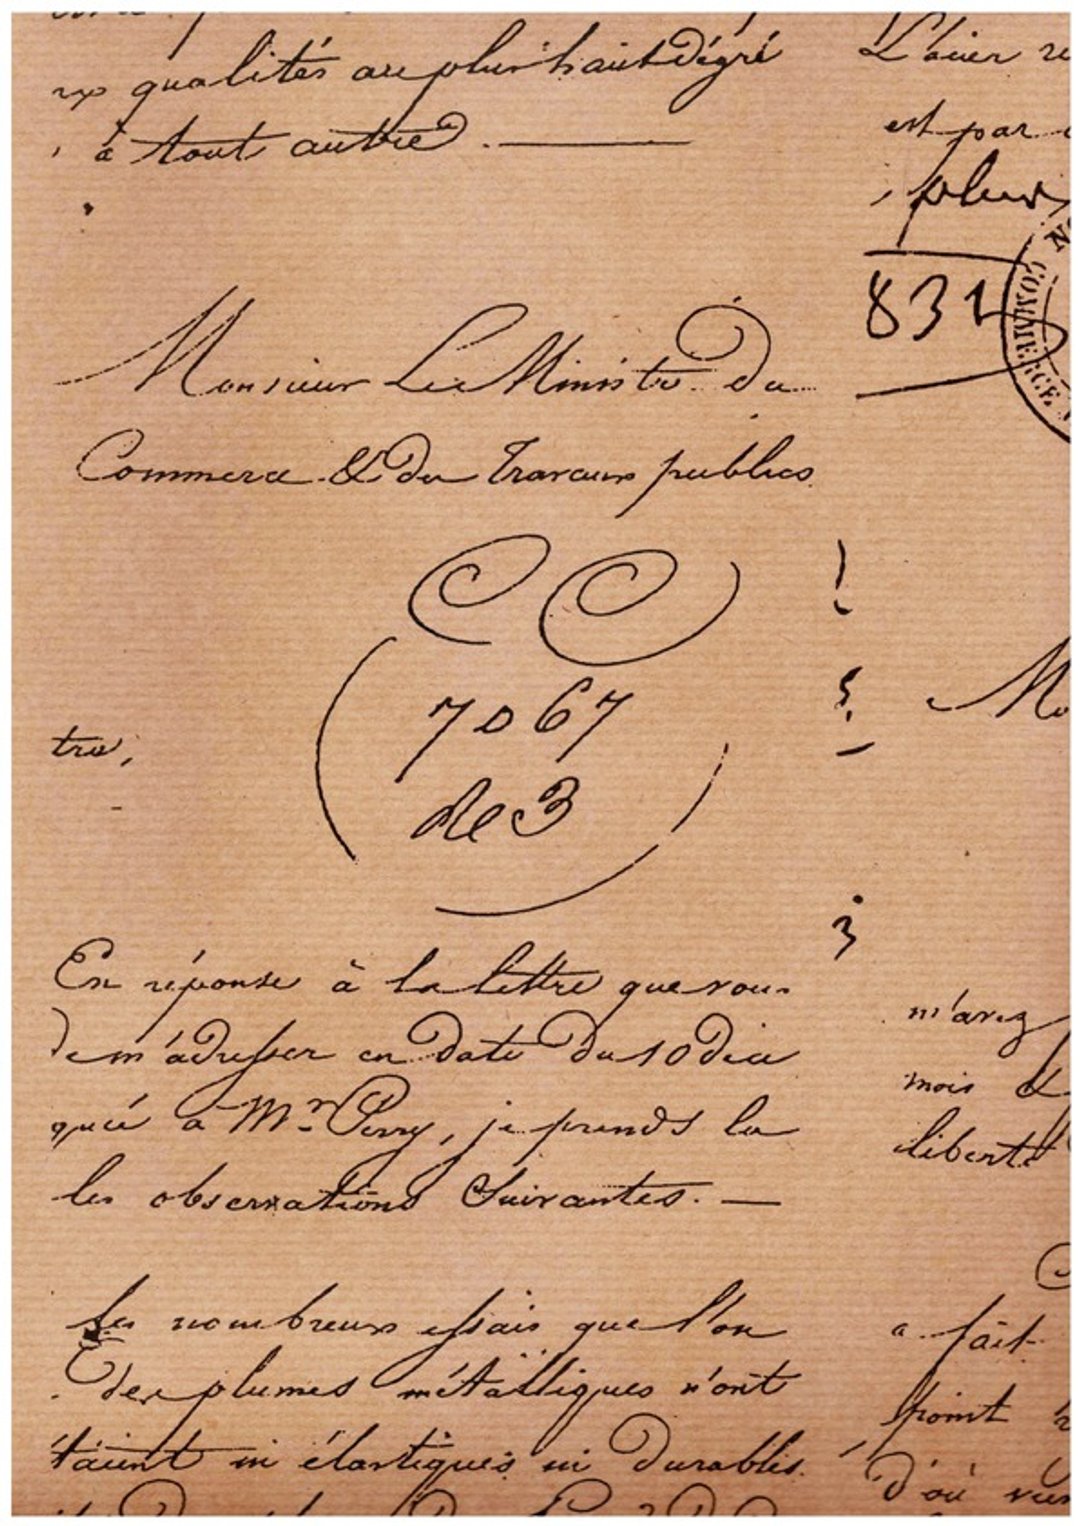 qualités au plus haut dégré
à tout autre.
Monsieur Le Ministre du
Commerce & des Travaux publics
7067
de 3
tre,
En réponse à la lettre que vous
de m'adresser en date du 10 du
à Mr. Perry, je prends la
les observations Suivantes. —
Les nombreux essais que l'on
des plumes métalliques n'ont
taient ni élastiques ni durables.
L'acier
est par
plus
831
COMMERCE
Mo
m'avez
mois &
liberté
a fait
point
d'où